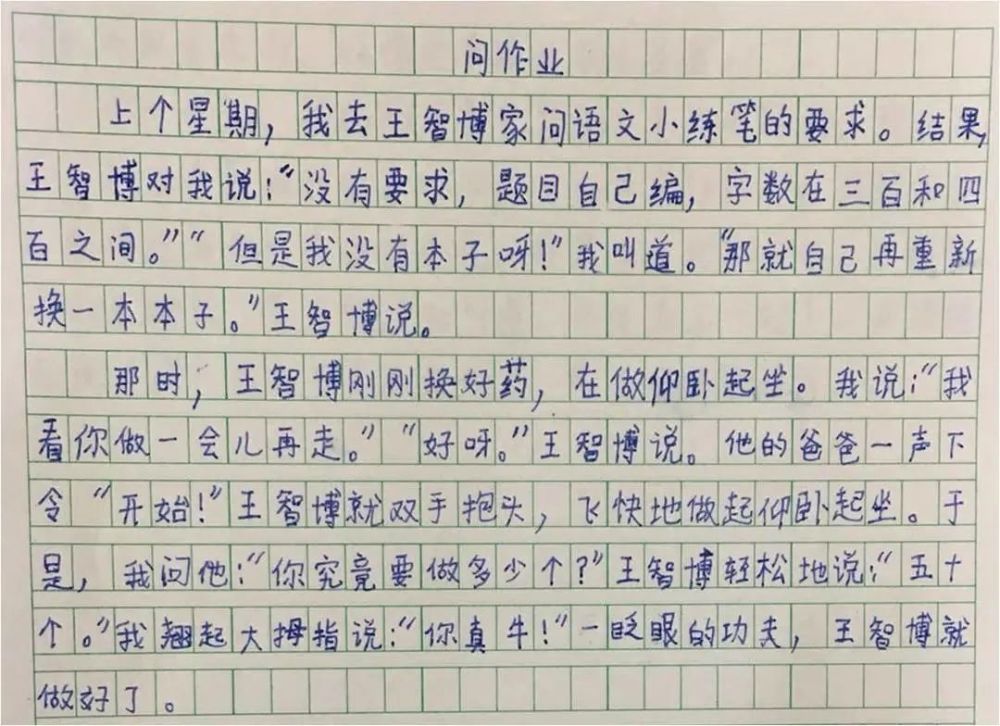 问作业
上个星期，我去王智博家问语文小练笔的要求。结果，
王智博对我说：“没有要求，题目自己编，字数在三百和四
百之间。”“但是我没有本子呀！”我叫道。“那就自己再重新
换一本本子。”王智博说。
那时，王智博刚刚换好药，在做仰卧起坐。我说：“我
看你做一会儿再走。”“好呀。”王智博说。他的爸爸一声下
令“开始！”王智博就双手抱头，飞快地做起仰卧起坐。于
是，我问他：“你究竟要做多少个？”王智博轻松地说：“五十
个。”我翘起大拇指说：“你真牛！”一眨眼的功夫，王智博就
做好了。